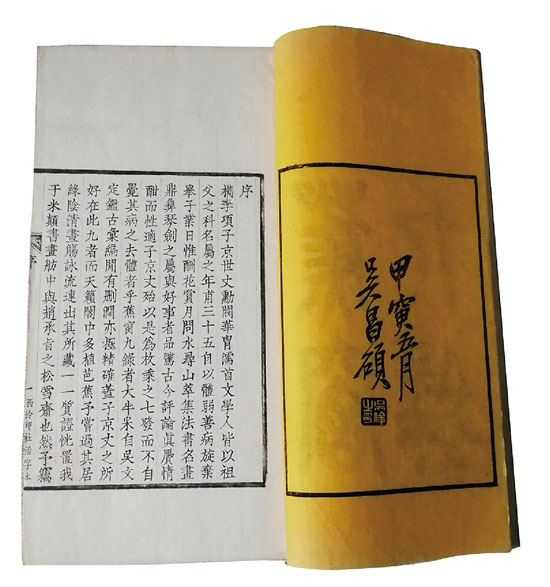 甲寅五月
吳昌碩
序
檇李項子京世丈勳閥華冑濡首文學人皆以祖
父之科名屬之年甫三十五自以體弱善病旋棄
舉子業日惟酬花賞月問水尋山萃集法書名畫
鼎彝琴劍之屬與好事者品騭古今評論眞贋情
酣而性適子京丈殆以是爲枚乘之七發而不自
覺其病之去體者乎蕉窗九錄者大半采自吳文
定鑑古彙編閒有刪潤亦極精確蓋子京丈之所
好在此九者而天籟閣中多植芭蕉予嘗過其居
綠陰清晝觴詠流連出其所藏一一質證恍置我
于米顛書畫舫中與趙承旨之松雪齋也然予竊
序
一 西泠印社活字本